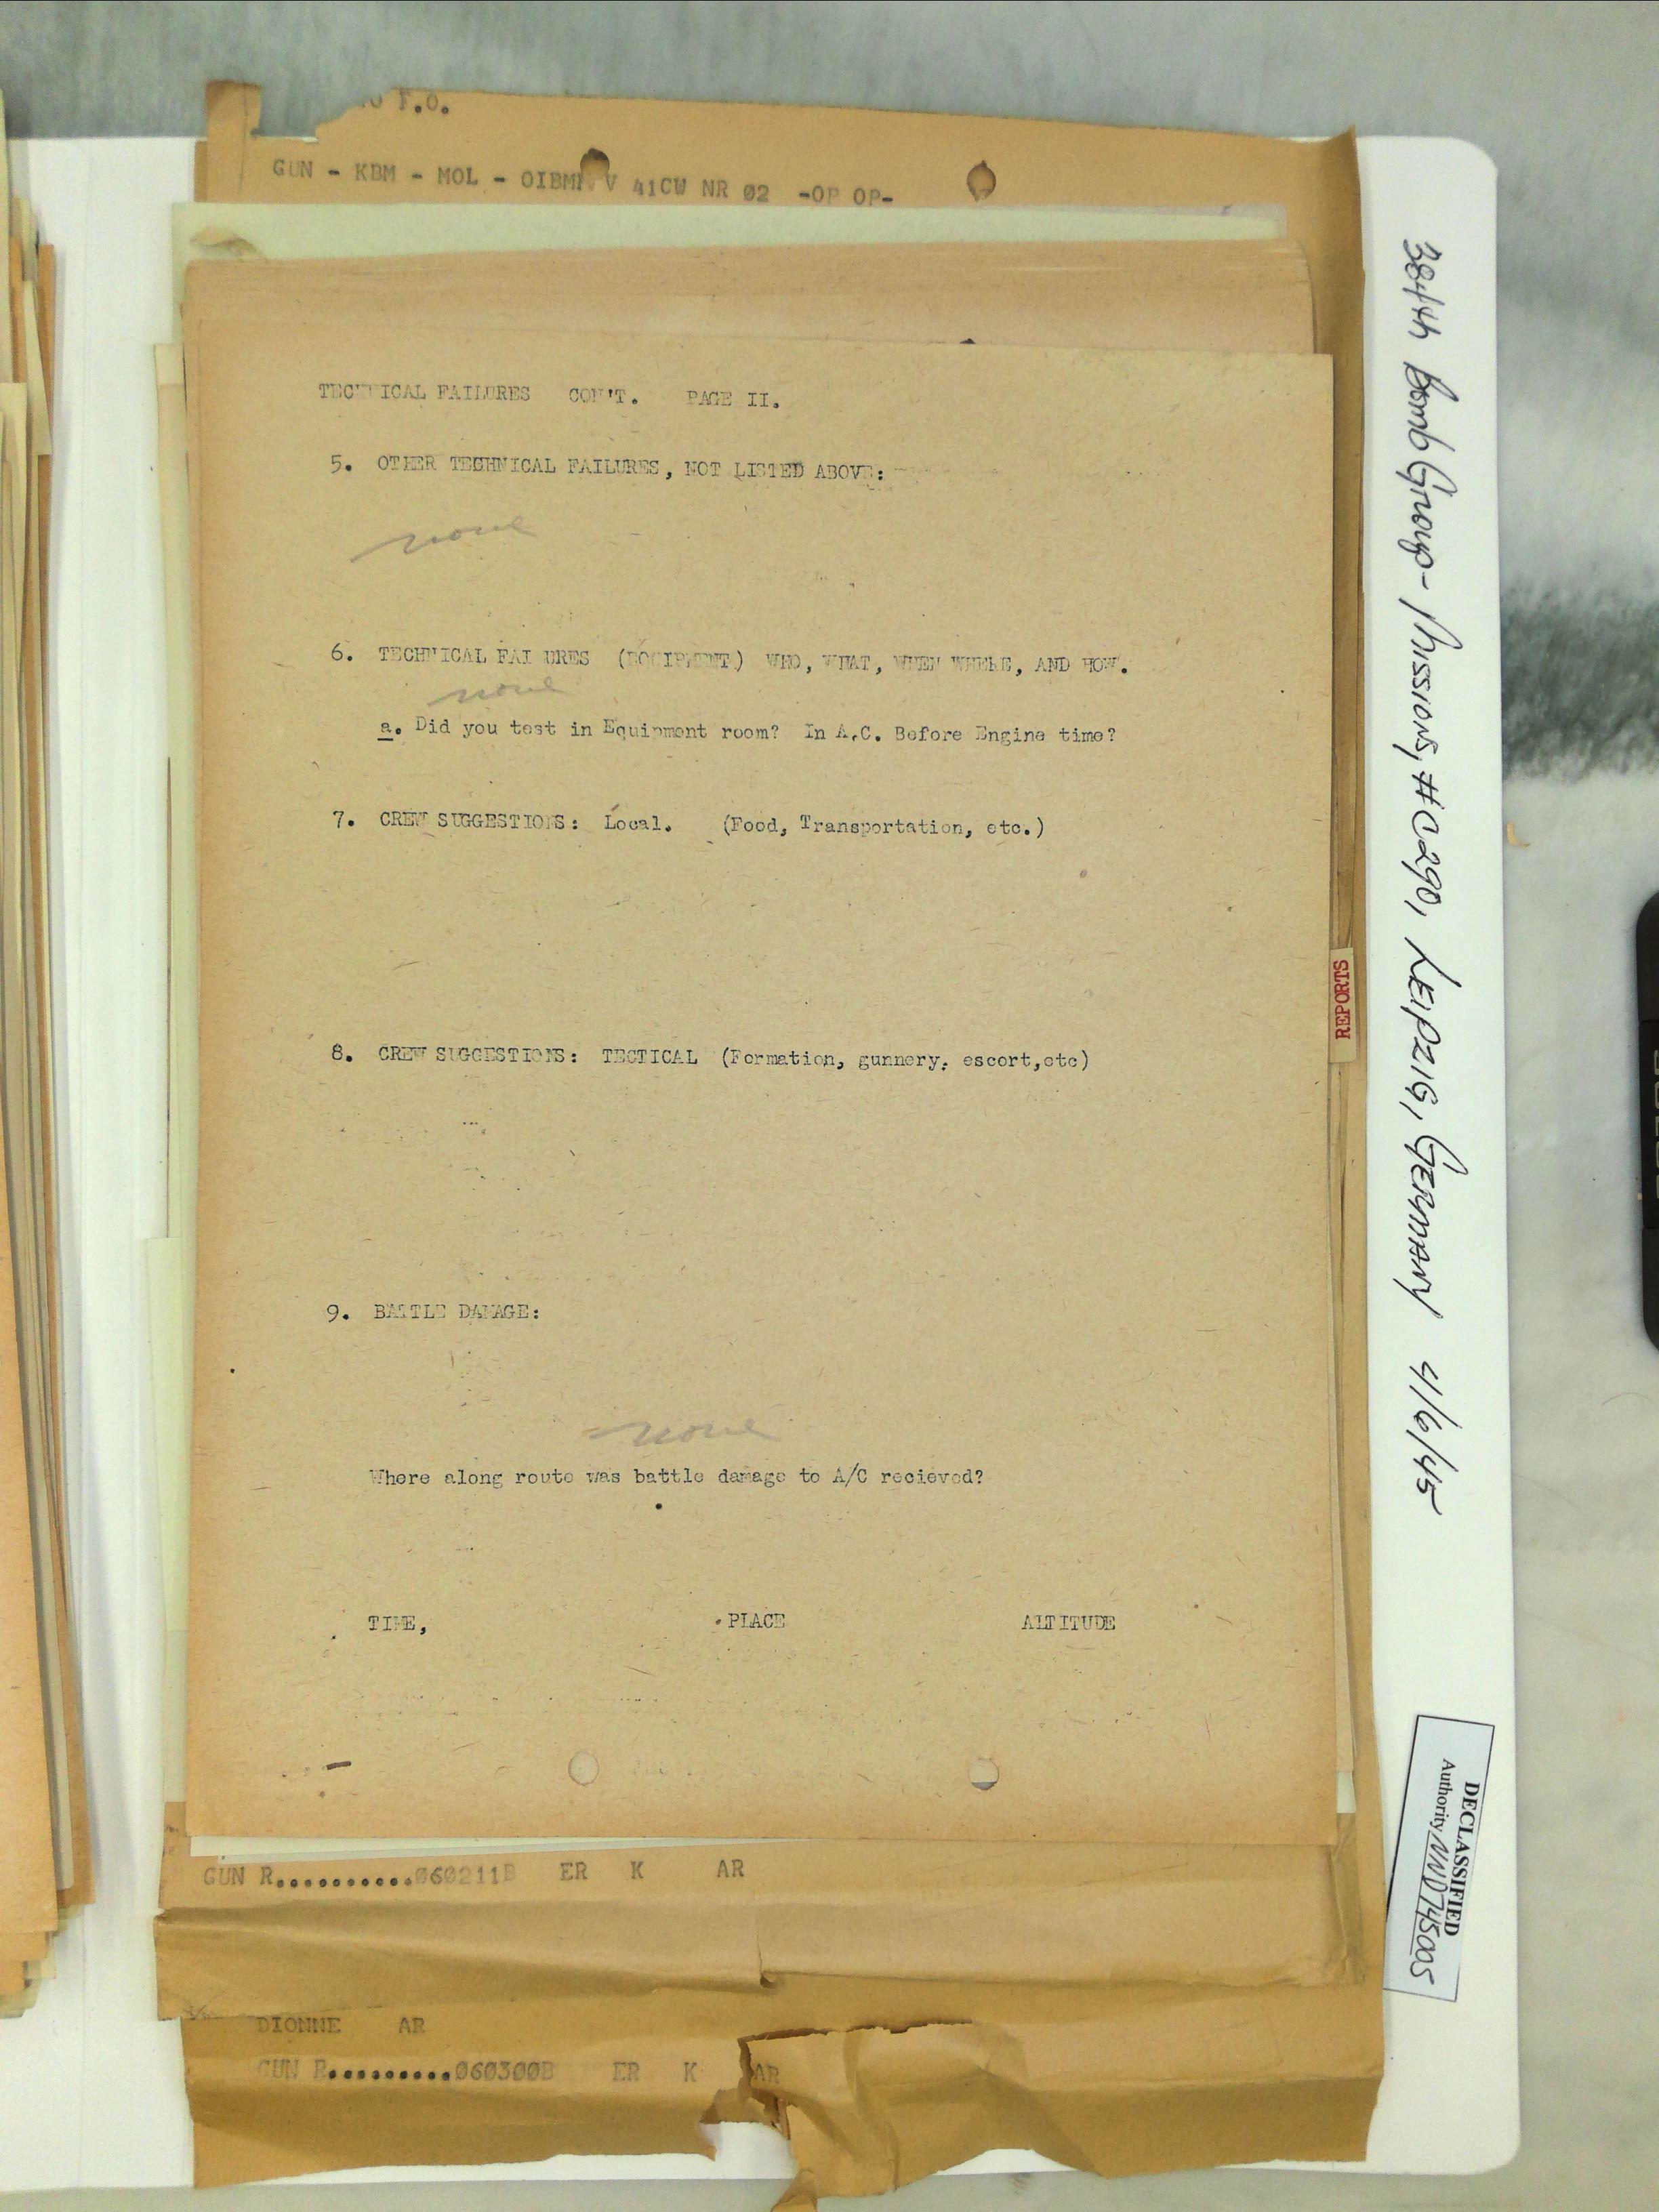 F.O.
GUN - KBM - MOL - OIBMN V 41CW NR 02 -OP OP-
TECHNICAL FAILURES CON'T. PAGE II.
5. OTHER TECHNICAL FAILURES, NOT LISTED ABOVE:
none
6. TECHNICAL FAILURES (EQUIPMENT) WHO, WHAT, WHEN WHERE, AND HOW.
none
a. Did you test in Equipment room? In A.C. Before Engine time?
7. CREW SUGGESTIONS: Local. (Food, Transportation, etc.)
8. CREW SUGGESTIONS: TECTICAL (Formation, gunnery, escort,etc)
9. BATTLE DAMAGE:
none
Where along route was battle damage to A/C recieved?
TIME, PLACE ALTITUDE
GUN R..........060211B ER K AR
DIONNE AR
GUN R..........060300B ER K AR
REPORTS
384th Bomb Group- Missions, #C290, LEIPZIG, GERMANY 4/6/45
DECLASSIFIED
Authority NND745005